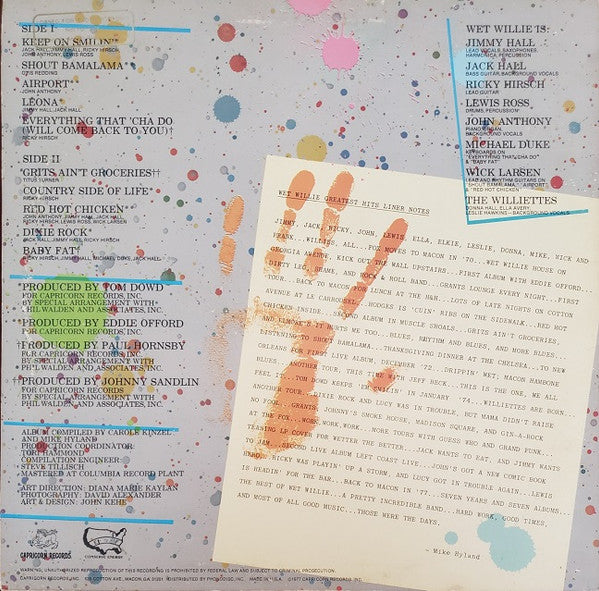 SIDE I
KEEP ON SMILIN'*
JACK HALL, JIMMY HALL, RICKY HIRSCH
JOHN ANTHONY, LEWIS ROSS
SHOUT BAMALAMA
OTIS REDDING
AIRPORT
JOHN ANTHONY
LEONA
JIMMY HALL, JACK HALL
EVERYTHING THAT 'CHA DO
(WILL COME BACK TO YOU)†
RICKY HIRSCH
SIDE II
GRITS AIN'T GROCERIES††
TITUS TURNER
COUNTRY SIDE OF LIFE*
RICKY HIRSCH
RED HOT CHICKEN
JOHN ANTHONY, JIMMY HALL, JACK HALL,
RICKY HIRSCH, LEWIS ROSS, WICK LARSEN
DIXIE ROCK*
JACK HALL, JIMMY HALL, RICKY HIRSCH
BABY FAT
RICKY HIRSCH, JIMMY HALL, MICHAEL DUKE, JACK HALL
*PRODUCED BY TOM DOWD
FOR CAPRICORN RECORDS, INC.
BY SPECIAL ARRANGEMENT WITH
PHIL WALDEN AND ASSOCIATES, INC.
PRODUCED BY EDDIE OFFORD
FOR CAPRICORN RECORDS, INC.
†PRODUCED BY PAUL HORNSBY
FOR CAPRICORN RECORDS, INC.
BY SPECIAL ARRANGEMENT WITH
PHIL WALDEN AND ASSOCIATES, INC.
††PRODUCED BY JOHNNY SANDLIN
FOR CAPRICORN RECORDS, INC.
BY SPECIAL ARRANGEMENT WITH
PHIL WALDEN AND ASSOCIATES, INC.
ALBUM COMPILED BY CAROLE KINZEL
AND MIKE HYLAND
PRODUCTION COORDINATOR:
TORI HAMMOND
COMPILATION ENGINEER:
STEVE TILLISCH
MASTERED AT COLUMBIA RECORD PLANT
ART DIRECTION: DIANA MARIE KAYLAN
PHOTOGRAPHY: DAVID ALEXANDER
ART & DESIGN: JOHN KEHE
CAPRICORN RECORDS
CONSERVE ENERGY
WET WILLIE IS:
JIMMY HALL
LEAD VOCALS, SAXOPHONES,
HARMONICA, PERCUSSION
JACK HALL
BASS GUITAR, BACKGROUND VOCALS
RICKY HIRSCH
LEAD GUITAR
LEWIS ROSS
DRUMS, PERCUSSION
JOHN ANTHONY
PIANO, ORGAN,
BACKGROUND VOCALS
MICHAEL DUKE
KEYBOARDS ON
"EVERYTHING THAT 'CHA DO"
& "BABY FAT"
WICK LARSEN
LEAD AND RHYTHM GUITARS ON
"SHOUT BAMALAMA", "AIRPORT"
& "RED HOT CHICKEN"
THE WILLIETTES
DONNA HALL, ELLA AVERY,
LESLIE HAWKINS - BACKGROUND VOCALS
WET WILLIE GREATEST HITS LINER NOTES
JIMMY, JACK, RICKY, JOHN, LEWIS, ELLA, ELKIE, LESLIE, DONNA, MIKE, WICK AND
FRANK...WILLIES, ALL...FOX MOVES TO MACON IN '70...WET WILLIE HOUSE ON
GEORGIA AVENUE, KICK OUT THE WALL UPSTAIRS...FIRST ALBUM WITH EDDIE OFFORD...
DIRTY LEG, HOME, AND ROCK & ROLL BAND...GRANTS LOUNGE EVERY NIGHT...FIRST
TOUR...BACK TO MACON FOR LUNCH AT THE H&H...LOTS OF LATE NIGHTS ON COTTON
AVENUE AT LE CARROUSEL...HODGES IS 'CUIN' RIBS ON THE SIDEWALK...RED HOT
CHICKEN INSIDE...SECOND ALBUM IN MUSCLE SHOALS...GRITS AIN'T GROCERIES,
AND ELMORE'S IT HURTS ME TOO...BLUES, RHYTHM AND BLUES, AND MORE BLUES...
LISTENING TO SHOUT BAMALAMA...THANKSGIVING DINNER AT THE CHELSEA...TO NEW
ORLEANS, FIRST LIVE ALBUM, DECEMBER '72...DRIPPIN' WET, MACON HAMBONE
BLUES, ANOTHER TOUR, THIS TIME WITH JEFF BECK...THIS IS THE ONE, WE ALL
FEEL...TOM DOWD KEEPS 'EM SMILIN' IN JANUARY '74...WILLIETTES ARE BORN...
ANOTHER TOUR...DIXIE ROCK AND LUCY WAS IN TROUBLE, BUT MAMA DIDN'T RAISE
NO FOOLS...GRANTS, JOHNNY'S SMOKE HOUSE, MADISON SQUARE, AND GIN-A-ROCK
AT THE FOX...WORK, WORK, WORK...MORE TOURS WITH GUESS WHO AND GRAND FUNK...
LEANING LP COVER FOR WETTER THE BETTER...JACK WANTS TO EAT, AND JIMMY WANTS
TO JAM...SECOND LIVE ALBUM LEFT COAST LIVE...JOHNY'S GOT A NEW COMIC BOOK
WAS PLAYIN' UP A STORM, AND LUCY GOT IN TROUBLE AGAIN...LEWIS
IS HEADIN' FOR THE BAR...BACK TO MACON IN '77...SEVEN YEARS AND SEVEN ALBUMS...
THE BEST OF WET WILLIE...A PRETTY INCREDIBLE BAND...HARD WORK, GOOD TIMES,
AND MOST OF ALL GOOD MUSIC...THOSE WERE THE DAYS.
- Mike Hyland
WARNING: UNAUTHORIZED REPRODUCTION OF THIS RECORDING IS PROHIBITED BY FEDERAL LAW AND SUBJECT TO CRIMINAL PROSECUTION.
CAPRICORN RECORDS, INC. 535 COTTON AVE., MACON, GA 31201. DISTRIBUTED BY PHONODISC, INC. MADE IN U.S.A. ©1977 CAPRICORN RECORDS, INC.